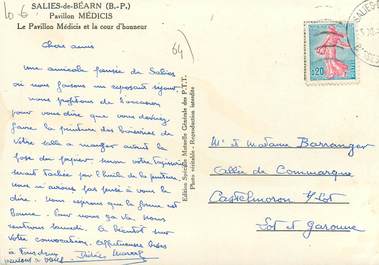 10-6
SALIES-de-BÉARN (B.-P.)
Pavillon MÉDICIS
Le Pavillon Médicis et la cour d'honneur
64
SALIES-
0,20
Chers amis
Une amicale pensée de Salies
où nous faisons un reposant séjour
nous profitons de l'occasion
pour vous dire que vous devriez
faire la peinture des boiseries de
votre salle a manger avant la
pose du papier sinon votre tapisserie
serait tachée par l'huile de la peinture.
nous n'avions pas pensé à vous le
dire. Nous espérons que la forme est
bonne. Pour nous ça va. Nous
rentrons samedi. A bientôt sur
votre convocation. Affectueuses bises
à tous deux
Edition Spéciale Mutuelle Générale des P.T.T.
Photo véritable - Reproduction interdite
Mr et Madame Barranger
Allée de Commarque
Castelmoron s/Lot
Lot et Garonne